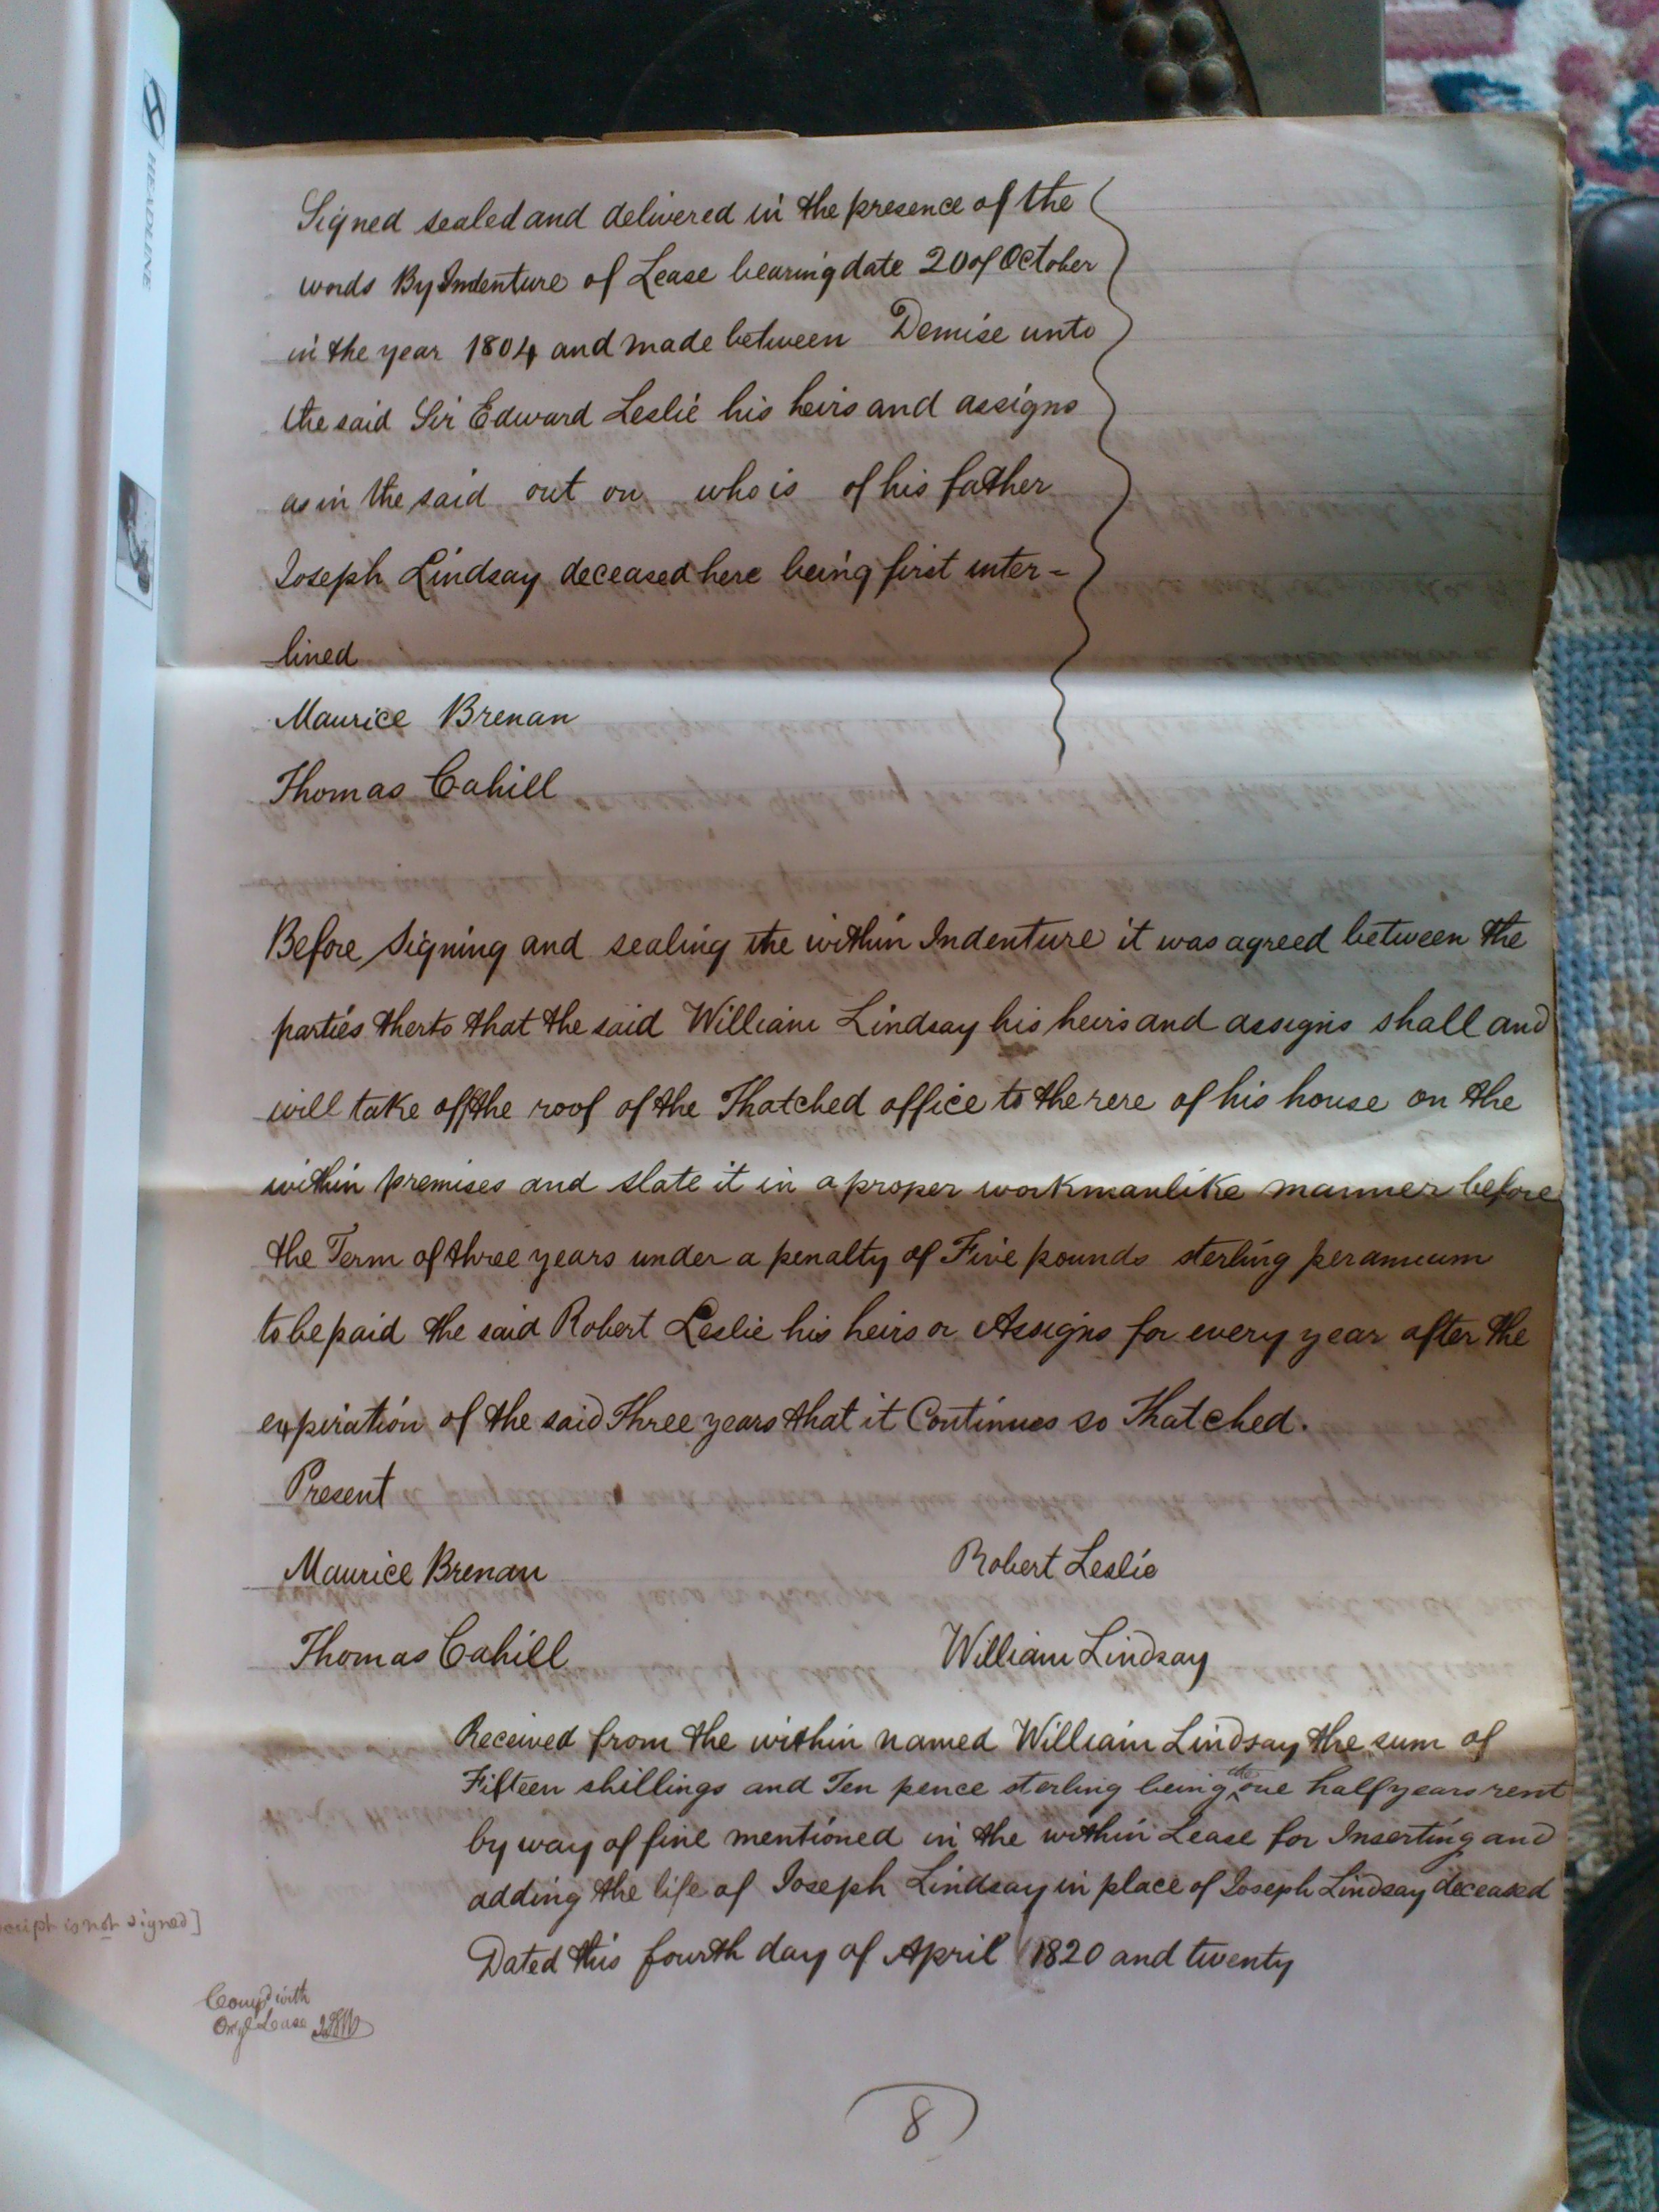 HEADLINE
Signed sealed and delivered in the presence of the
words By Indenture of Lease bearing date 20 of October
in the year 1804 and made between Demise unto
the said Sir Edward Leslie his heirs and assigns
as in the said out on who is of his father
Joseph Lindsay deceased here being first inter=
lined
Maurice Brenan
Thomas Cahill
Before Signing and sealing the within Indenture it was agreed between the
parties therto that the said William Lindsay his heirs and assigns shall and
will take off the roof of the Thatched office to the rere of his house on the
within premises and slate it in a proper workmanlike manner before
the Term of three years under a penalty of Five pounds sterling per annum
to be paid the said Robert Leslie his heirs or Assigns for every year after the
expiration of the said Three years that it Continues so Thatched.
Present
Maurice Brenan Robert Leslie
Thomas Cahill William Lindsay
Received from the within named William Lindsay the sum of
Fifteen shillings and Ten pence sterling being the one half years rent
by way of fine mentioned in the within Lease for Inserting and
adding the life of Joseph Lindsay in place of Joseph Lindsay deceased
Dated this fourth day of April 1820 and twenty
is not signed]
Comp'd with
Orig'l Lease
8